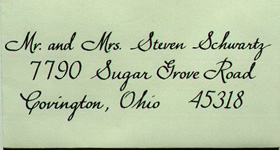 Mr. and Mrs. Steven Schwartz
7790 Sugar Grove Road
Covington, Ohio 45318